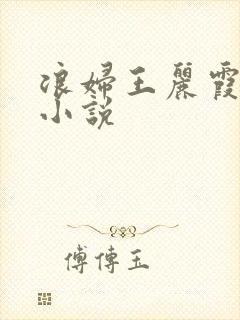 浪婦王麗霞
小說
傅傅玉